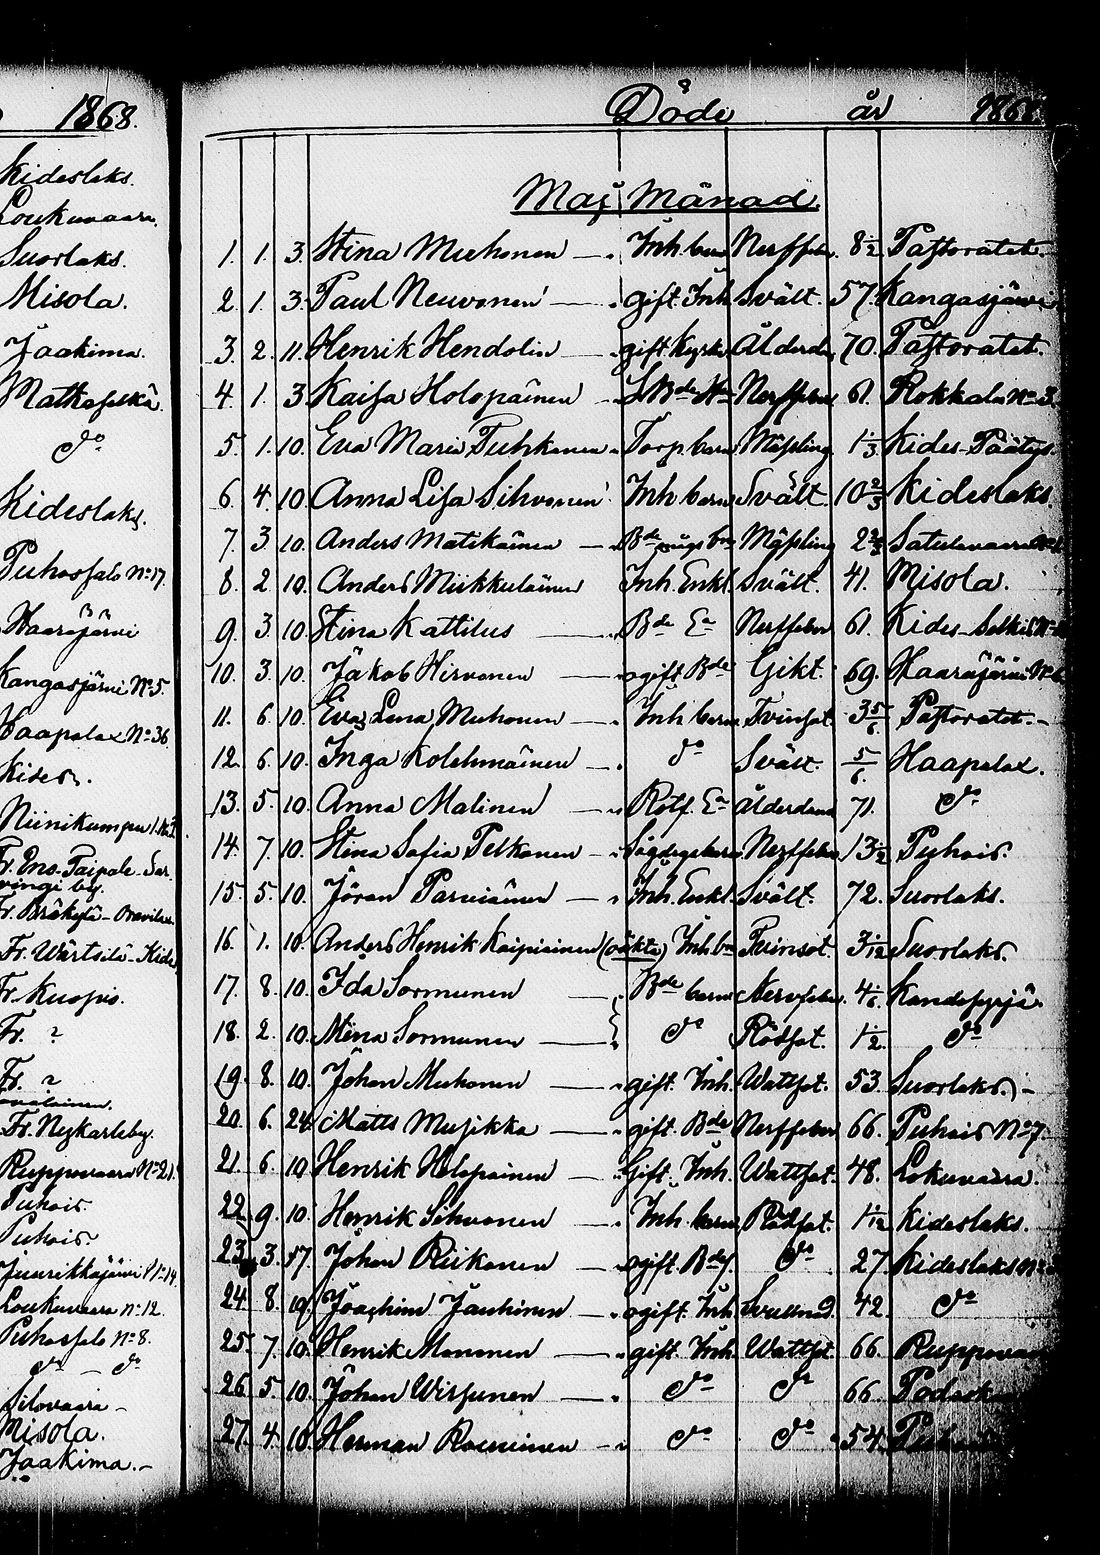 1868.
Kideslaks.
Loukuvaara.
Suorlaks.
Misola.
Jaakima.
Matkaselkä.
do
Kideslaks.
Puhossalo No 17.
Haarajärvi
Kangasjärvi No 5.
Haapalax No 36
Kides.
Niinikumpu
Fr. Eno. Taipale-Sar
vingi by.
Fr. Bräkylä-
Fr. Wärtsilä-Kide
Fr. Kuopio.
Fr. ?
Fr. ?
Fr. Nykarleby.
Ruppovaara No 21.
Puhois.
Puhois.
Juurikkajärvi No 14.
Loukuvaara No 12.
Puhossalo No 8.
do - do
Silovaara -
Misola.
Jaakima. -
Döde år 1868
Maj Månad.
1. 1. 3. Stina Muhonen - Inh. barn Nerffeber 8 1/2 Pastoratet.
2. 1. 3. Paul Neuvonen - gift. Inh. Svält. 57. Kangasjärvi
3. 2. 11. Henrik Hendolin - gift Kyrk. Ålderd. 70. Pastoratet.
4. 1. 3 Kaisa Holopäinen - Nerffeber 61. Rokkala No 3.
5. 1. 10. Eva Maria Tuhkanen Torp. barn Mässling 1 1/3 Kides-Päätys.
6. 4. 10. Anna Lisa Sihvonen Inh. barn Svält 10 2/3 Kideslaks.
7. 3. 10. Anders Matikainen - Bde Mässling Satulavaara
8. 2. 10. Anders Mukkulainen Inh. Enkl. Svält. 41. Misola.
9. 3. 10. Stina Kattilus - Bde Ea Nerffeber 61. Kides-Selkis
10. 3. 10. Jakob Hirvonen - ogift Bde Gikt. 69. Haarajärvi
11. 6. 10. Eva Lena Muhonen - Inh. barn Tvinsot. 3 5/6. Pastoratet. -
12. 6. 10. Inga Kolehmainen - do Svält. 5/6. Haapalax.
13. 5. 10. Anna Malinen - Rotf. Ea Ålderdom 71. do
14. 7. 10. Stina Sofia Pelkonen - Nerffeber 13 1/2 Puhois.
15. 5. 10. Jöran Parviainen - Inh. Enkl. Svält. 72. Suorlaks.
16. 1. 10. Anders Henrik Kaipiainen (oäkta) Inh. bn Tvinsot. 3 1/12 Suorlaks.
17. 8. 10. Ida Sormunen Bde barn Nervfeber 4/6.
18. 2. 10. Mina Sormunen - do Rödsot. 1/2. do
19. 8. 10. Johan Muhonen - gift. Inh. Wattsot. 53. Suorlaks. -
20. 6. 24. Matts Musikka - gift. Bde Nerffeber 66. Puhois No 7.
21. 6. 10. Henrik Holopainen - Gift. Inh. Wattsot. 48. Lokuvaara.
22. 9. 10. Henrik Sihvonen - Inh. barn Rödsot. 1 1/12 Kideslaks.
23. 3. 17. Johan Riikonen - ogift. Bds. do 27. Kideslaks
24. 8. 19. Joachim Jauhinen - ogift. Inh. 42. do
25. 7. 10. Henrik Mononen - gift. Inh. Wattsot. 66. Ruppovaa
26. 5. 10. Johan Wirsunen - do do 66.
27. 4. 10. Herman Romunen - do do 54.